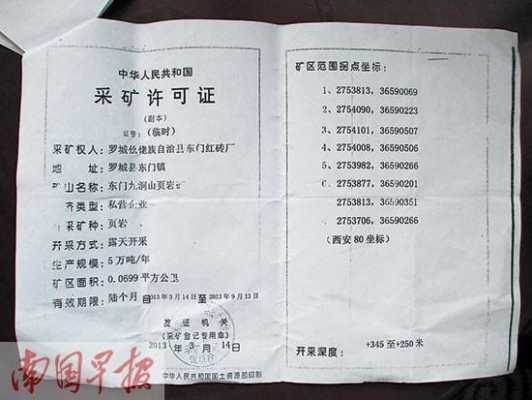 中华人民共和国
采矿许可证
(副本)
证号：(临时)
采矿权人：罗城仫佬族自治县东门红砖厂
地 址：罗城县东门镇
矿山名称：东门九洞山页岩矿
类型：私营企业
采矿种：页岩
开采方式：露天开采
生产规模：5万吨/年
矿区面积：0.0699 平方公里
有效期限：陆个月 自2013年3月14日至2013年9月13日
发证机关
(采矿登记专用章)
2013 年 3 月 14日
中华人民共和国国土资源部印制
矿区范围拐点坐标：
1、2753813，36590069
2、2754090，36590223
3、2754101，36590507
4、2754008，36590506
5、2753982，36590266
6、2753877，36590201
2753813，36590351
2753706，36590266
(西安 80 坐标)
开采深度： +345 至+250 米
南国早报